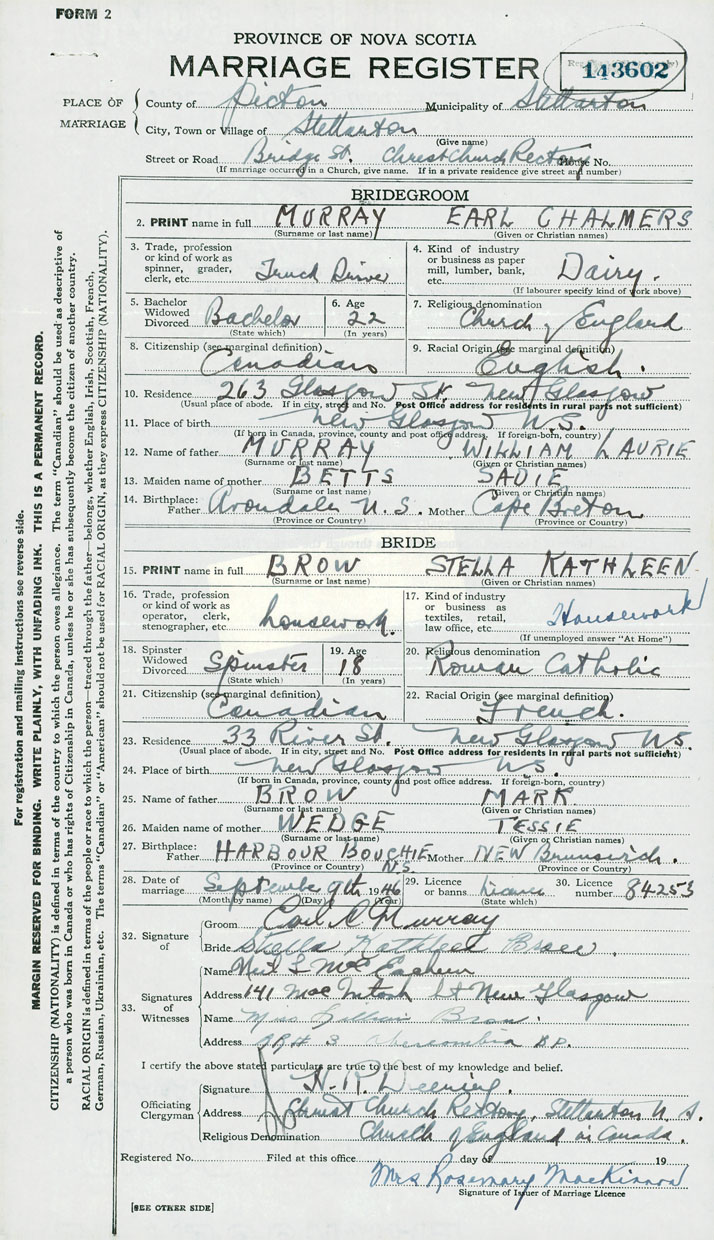 FORM 2
PROVINCE OF NOVA SCOTIA
MARRIAGE REGISTER
143602
PLACE OF MARRIAGE
County of Picton Municipality of Stellarton
City, Town or Village of Stellarton
(Give name)
Street or Road Bridge St. Christ Church Rectory House No.
(If marriage occurred in a Church, give name. If in a private residence give street and number)
BRIDEGROOM
2. PRINT name in full MURRAY EARL CHALMERS
(Surname or last name) (Given or Christian names)
3. Trade, profession or kind of work as spinner, grader, clerk, etc. Truck Driver
4. Kind of industry or business as paper mill, lumber, bank, etc. Dairy.
(If labourer specify kind of work above)
5. Bachelor Widowed Divorced Bachelor (State which)
6. Age 22 (In years)
7. Religious denomination Church of England
8. Citizenship (see marginal definition) Canadian
9. Racial Origin (see marginal definition) English.
10. Residence 263 Glasgow St. New Glasgow
(Usual place of abode. If in city, street and No. Post Office address for residents in rural parts not sufficient)
11. Place of birth New Glasgow N.S.
(If born in Canada, province, county and post office address. If foreign-born, country)
12. Name of father MURRAY WILLIAM LAURIE
(Surname or last name) (Given or Christian names)
13. Maiden name of mother BETTS SADIE
(Surname or last name) (Given or Christian names)
14. Birthplace: Father Avondale N.S. Mother Cape Breton
(Province or Country) (Province or Country)
BRIDE
15. PRINT name in full BROW STELLA KATHLEEN
(Surname or last name) (Given or Christian names)
16. Trade, profession or kind of work as operator, clerk, stenographer, etc. housework.
17. Kind of industry or business as textiles, retail, law office, etc. Housework
(If unemployed answer "At Home")
18. Spinster Widowed Divorced Spinster (State which)
19. Age 18 (In years)
20. Religious denomination Roman Catholic
21. Citizenship (see marginal definition) Canadian
22. Racial Origin (see marginal definition) French.
23. Residence 33 River St. New Glasgow N.S.
(Usual place of abode. If in city, street and No. Post Office address for residents in rural parts not sufficient)
24. Place of birth New Glasgow N.S.
(If born in Canada, province, county and post office address. If foreign-born, country)
25. Name of father BROW MARK
(Surname or last name) (Given or Christian names)
26. Maiden name of mother WEDGE TESSIE
(Surname or last name) (Given or Christian names)
27. Birthplace: Father HARBOUR BOUCHIE N.S. Mother NEW Brunswick.
(Province or Country) (Province or Country)
28. Date of marriage September 9th 1946
(Month by name) (Day) (Year)
29. Licence or banns Licence (State which)
30. Licence number 84253
32. Signature of
Groom Earl C Murray
Bride Stella Kathleen Brow.
33. Signatures of Witnesses
Name Neil
Address 141 MacIntosh St New Glasgow
Name Brow.
Address R.R.# 3 Abercrombie
I certify the above stated particulars are true to the best of my knowledge and belief.
Officiating Clergyman
Signature H. R. Deening.
Address Christ Church Rectory, Stellarton N.S.
Religious Denomination Church of England in Canada.
Registered No. Filed at this office day of 19
Mrs Rosemary MacKinnon
Signature of Issuer of Marriage Licence
[SEE OTHER SIDE]
For registration and mailing instructions see reverse side.
MARGIN RESERVED FOR BINDING. WRITE PLAINLY, WITH UNFADING INK. THIS IS A PERMANENT RECORD.
CITIZENSHIP (NATIONALITY) is defined in terms of the country to which the person owes allegiance. The term "Canadian" should be used as descriptive of
a person who was born in Canada or who has rights of Citizenship in Canada, unless he or she has subsequently become the citizen of another country.
RACIAL ORIGIN is defined in terms of the people or race to which the person—traced through the father—belongs, whether English, Irish, Scottish, French,
German, Russian, Ukrainian, etc. The terms "Canadian" or "American" should not be used for RACIAL ORIGIN, as they express CITIZENSHIP (NATIONALITY).